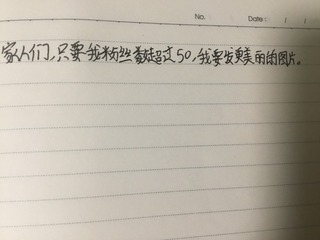 No.
Date / /
家人们,只要我粉丝数超过50,我要发更美丽的图片。